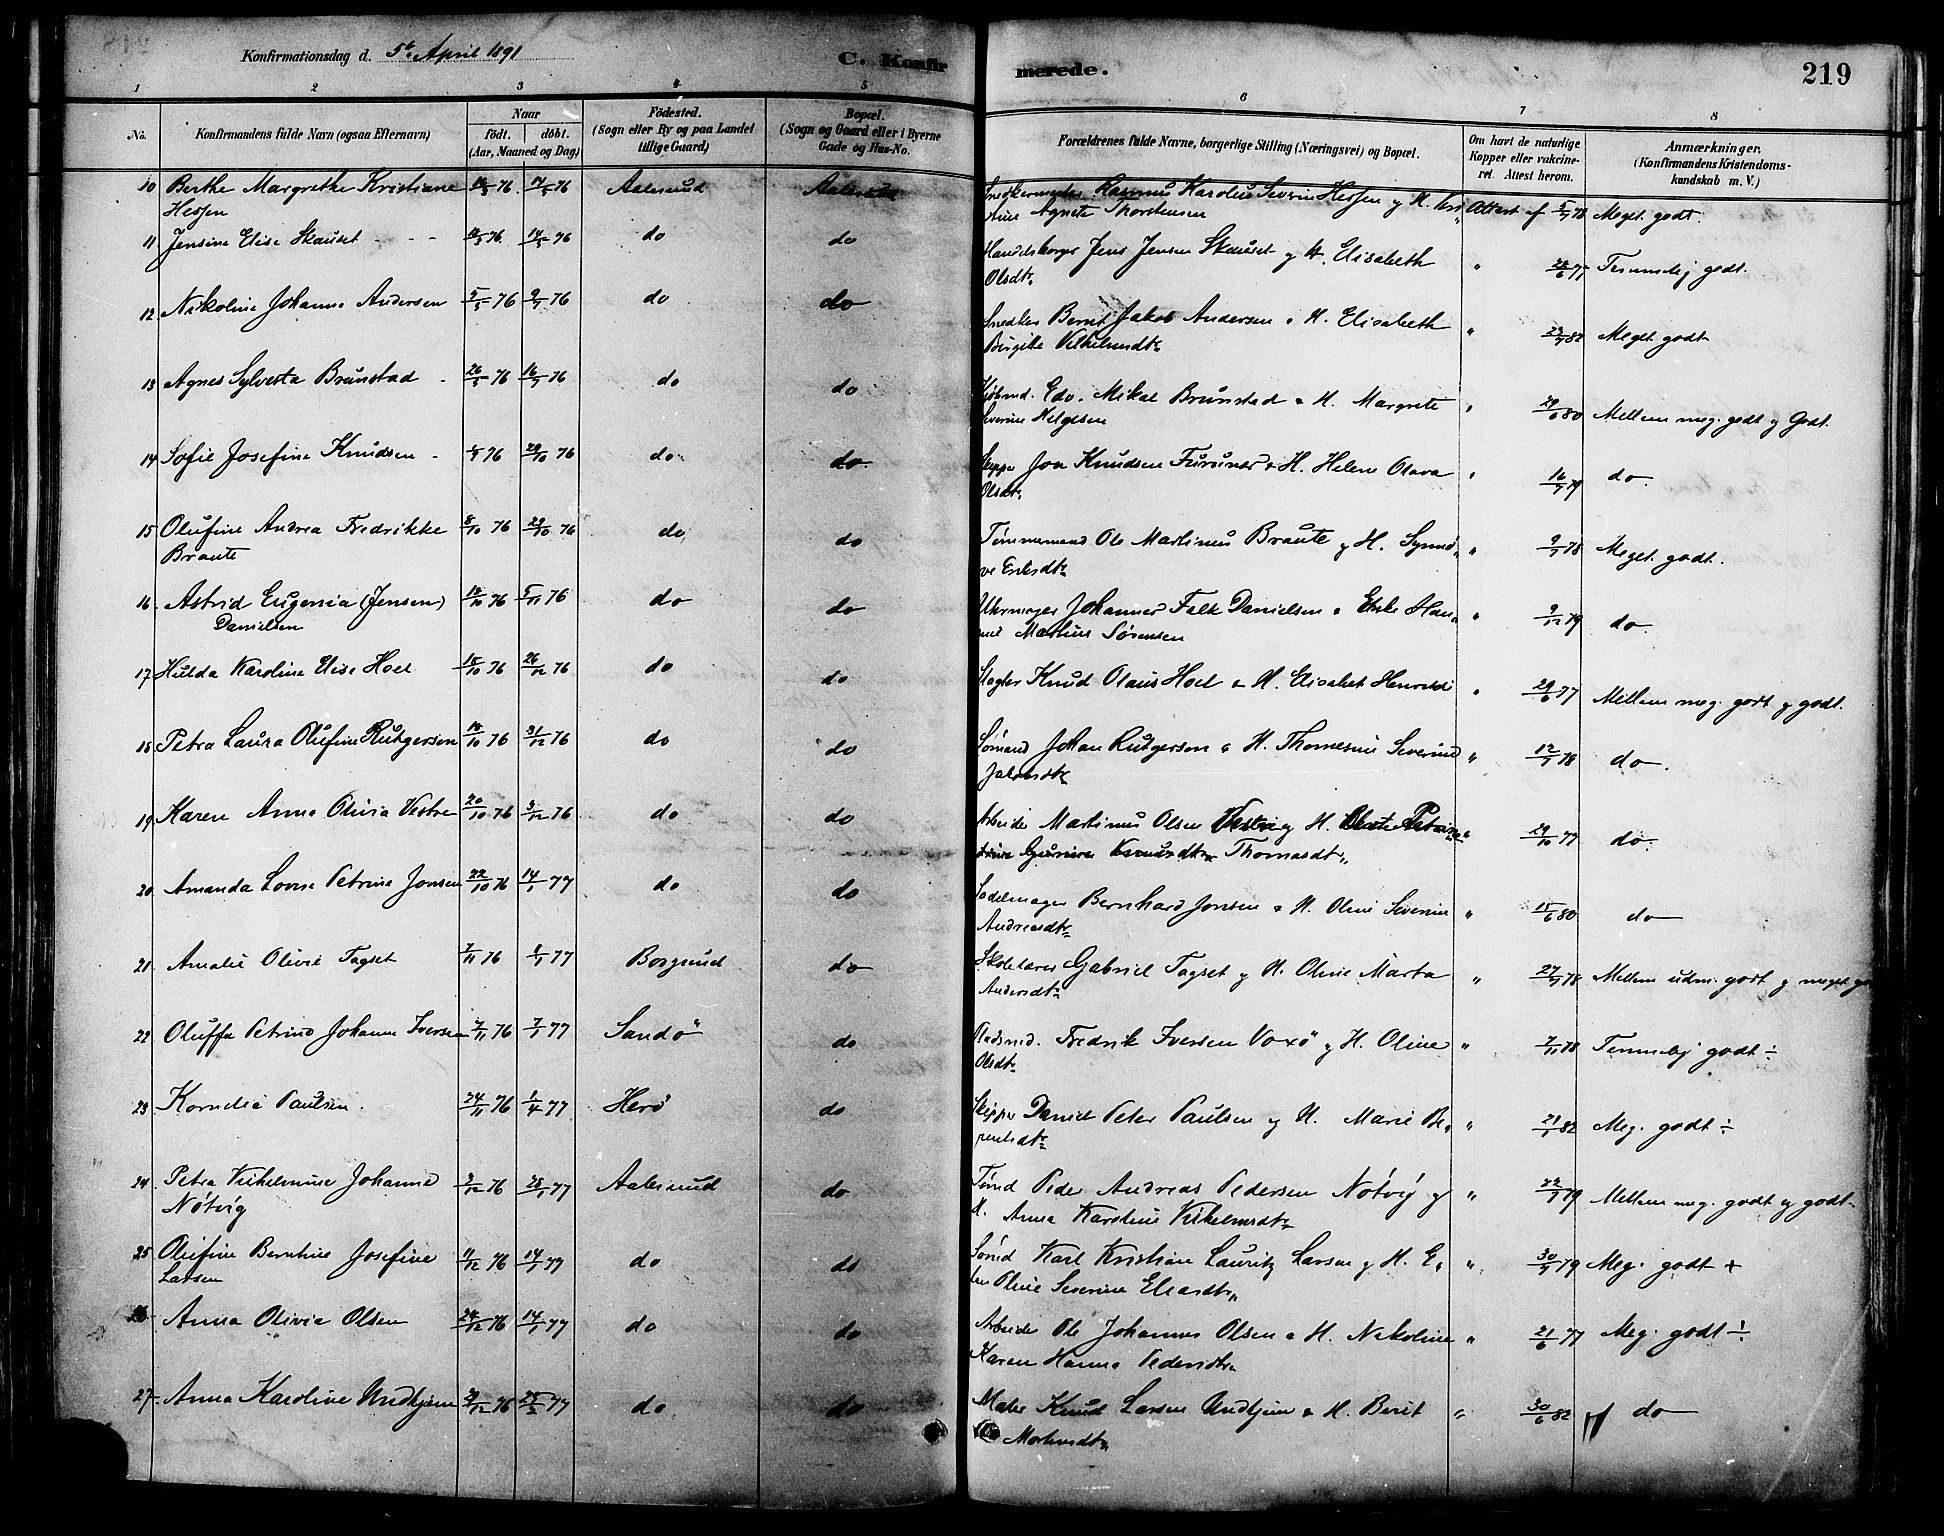 Konfirmationsdag d. 5te April 1891
C. Konfirmerede.
219
1 2 3 4 5 6 7 8
No.
Konfirmandens fulde Navn (ogsaa Efternavn)
Naar
født. døbt.
(Aar, Maaned og Dag)
Födested.
(Sogn eller By og paa Landet
tillige Gaard)
Bopæl.
(Sogn og Gaard eller i Byerne
Gade og Hus-No.
Forældrenes fulde Navne, borgerlige Stilling (Næringsvei) og Bopæl.
Om havt de naturlige
Kopper eller vakcine-
ret. Attest herom.
Anmærkninger.
(Konfirmandens Kristendoms-
kundskab m. V.)
10 Berthe Margrethe Kristiane 76 76 Aalesund Aalesund Snedkermester Rasmus Karolus Severin Hessen og H. Attest af 5/7 78 Meget godt.
Hessen Agnete Thorstensen
11 Jensine Elise Skauset 76 14/5 76 do do Handelsborger Jens Jensen Skauset og H. Elisabeth " 28/6 77 Temmelig godt.
Olsdtr.
12 Nikoline Johanne Andersen 5/5 76 9/7 76 do do Snedker Bernt Jakob Andersen & H. Elisabeth " 82 Meget godt
Birgitte Vilhelmsdtr
13 Agnes Sylvesta Brunstad 26/5 76 16/7 76 do do Edv. Mikal Brunstad & H. Margrete " 29/6 80 Mellem meg. godt og Godt.
Severine Helgesen
14 Sofie Josefine Knudsen 76 29/10 76 do do Skipper Jon Knudsen Furunes & H. Helene Olava " 79 do.
Olsdtr.
15 Olufine Andrea Fredrikke 8/10 76 29/10 76 do do Tømmermand Ole Martinus Braute og H. Synnø- " 78 Meget godt.
Braute ve Eriksdtr
16 Astrid Eugenia (Jensen) 76 5/11 76 do do Uhrmager Johannes Falk Danielsen & Enke " 9/12 79 do.
Danielsen Martine Sørensen
17 Hulda Karoline Elise Hoel 18/10 76 26/12 76 do do Slagter Knud Olaus Hoel & H. Elisabet " 29/6 77 Mellem meg. godt og godt.
18 Petra Laura Olufine Rutgerson 76 31/12 76 do do Sømand Johan Rutgerson & H. Severine " 78 do.
19 Karen Anna Olivia Vestre 20/10 76 3/12 76 do do Arbeider Martinus Olsen Vestre og H. " 29/10 77 do.
Thomasdtr
20 Amanda Lovise Petrine Jonsen 22/10 76 14/1 77 do do Sadelmager Bernhard Jonsen & H. Oline Severine " 15/6 80 do
Andreasdtr
21 Amalie Olivie Tagset 7/11 76 1/1 77 Borgund do Skolelærer Gabriel Tagset og H. Oline Marta " 78 Mellem udm. godt og meget
Andersdtr
22 Oluffa Petrine Johanne Iversen 7/11 76 7/1 77 Sandø do Fredrik Iversen Voxö og H. Oline " 7/11 78 Temmelig godt ÷
Olsdtr
23 Kornelia Paulsen. 24/11 76 1/4 77 Herø do Skipper Daniel Peter Paulsen og H. Marie " 82 Meg. godt ÷
24 Petra Vilhelmine Johanne 3/12 76 28/1 77 Aalesund do Peder Andreas Pedersen Nøtvig og " 79 Mellem meg. godt og godt
Nøtvig H. Anna Karoline Vilhelmsdtr
25 Olufine Berntine Josefine 11/12 76 14/1 77 do do Karl Kristian Lauritz Larsen og H. E- " 79 Meg. godt +
Larsen Oline Severine
26 Anna Olivia Olsen 24/12 76 14/1 77 do do Arbeider Ole Johannes Olsen & H. Nikoline " 21/6 77 Meg. godt ÷
Karen Hanna Pedersdtr
27 Anna Karoline Undhjem 76 25/2 77 do do Maler Knud Larsen Undhjem & H. Berit " 30/6 82 do
Mortensdtr